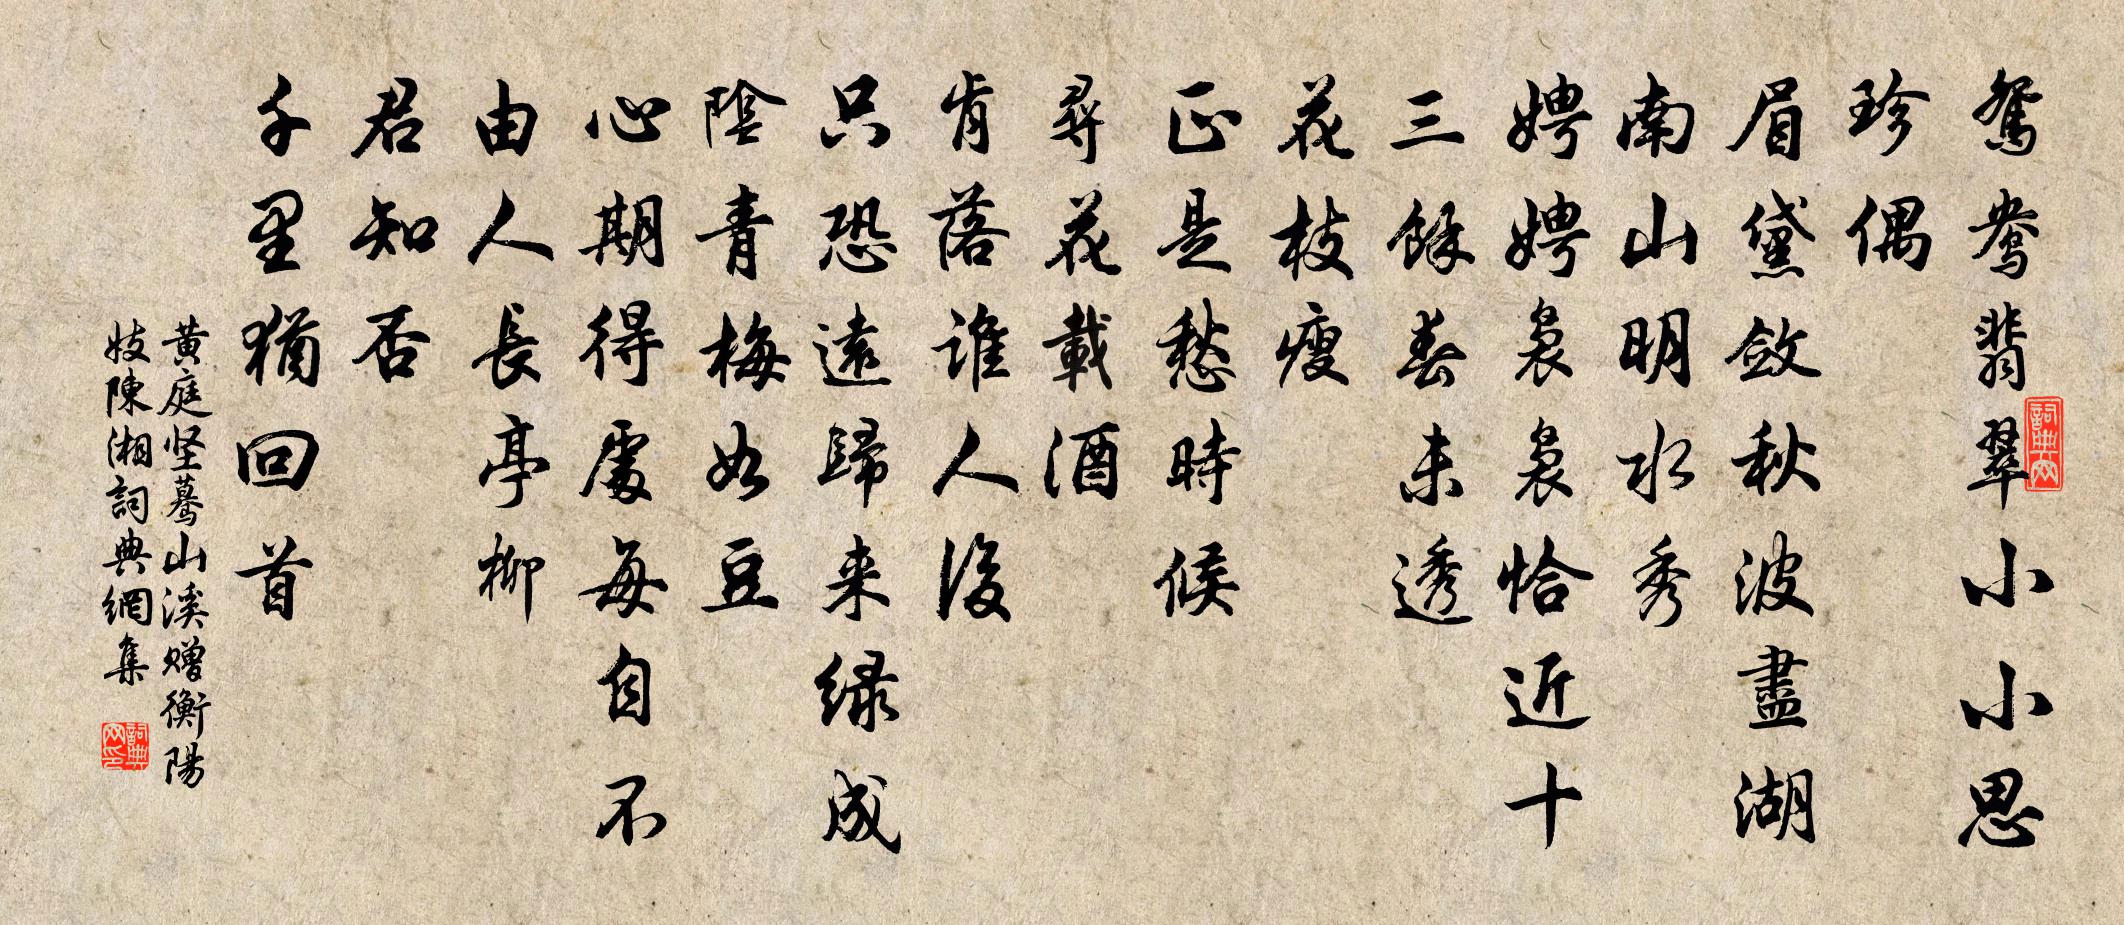 鴛鴦翡翠小小思
珍偶
眉黛斂秋波盡湖
南山明水秀
娉娉裊裊恰近十
三餘春未透
花枝瘦
正是愁時候
尋花載酒
肯落誰人後
只恐遠歸来绿成
陰青梅如豆
心期得處每自不
由人長亭柳
君知否
千里猶回首
黄庭坚驀山溪赠衡陽
妓陳湘詞典網集
詞典网
詞典网印